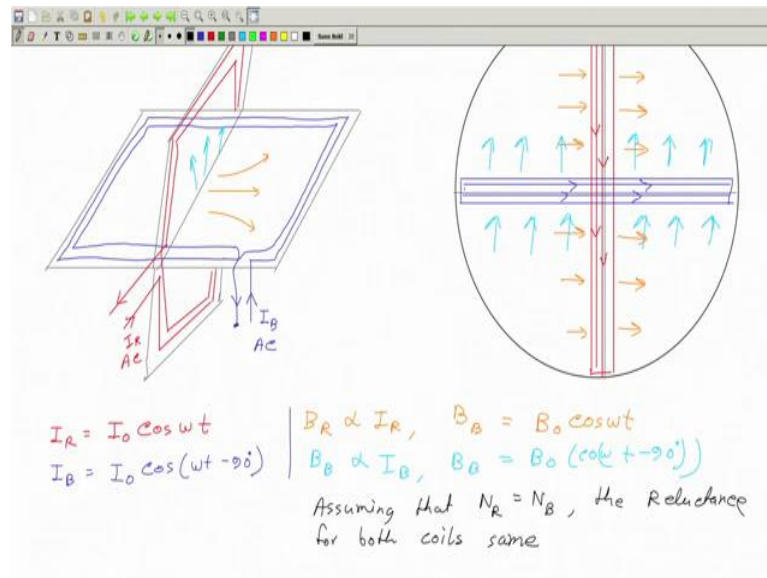 I_R
AC
I_B
AC
I_R = I_0 cos ωt
I_B = I_0 cos (ωt -90°)
B_R ∝ I_R, B_B = B_0 cosωt
B_B ∝ I_B, B_B = B_0 (co(ω t -90°))
Assuming that N_R = N_B, the Reluctance
for both coils same